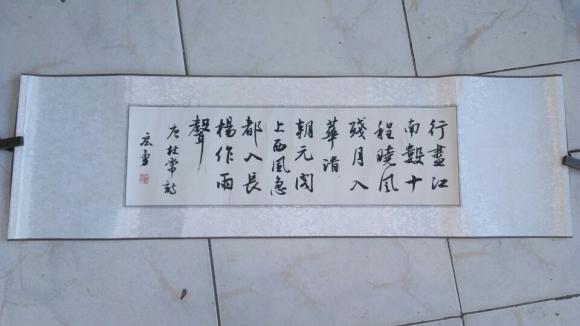 行盡江
南數十
程曉風
殘月入
華清
朝元閣
上西風急
都入長
楊作雨
聲
唐杜常詩